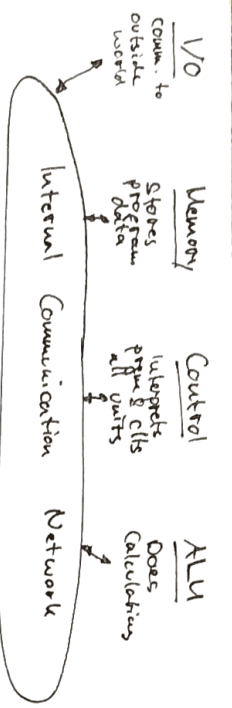 I/O
comm. to
outside
world
Memory
Stores
program
data
Control
Interprets
prgm & ctls
all units
ALU
Does
Calculations
Internal Communication Network